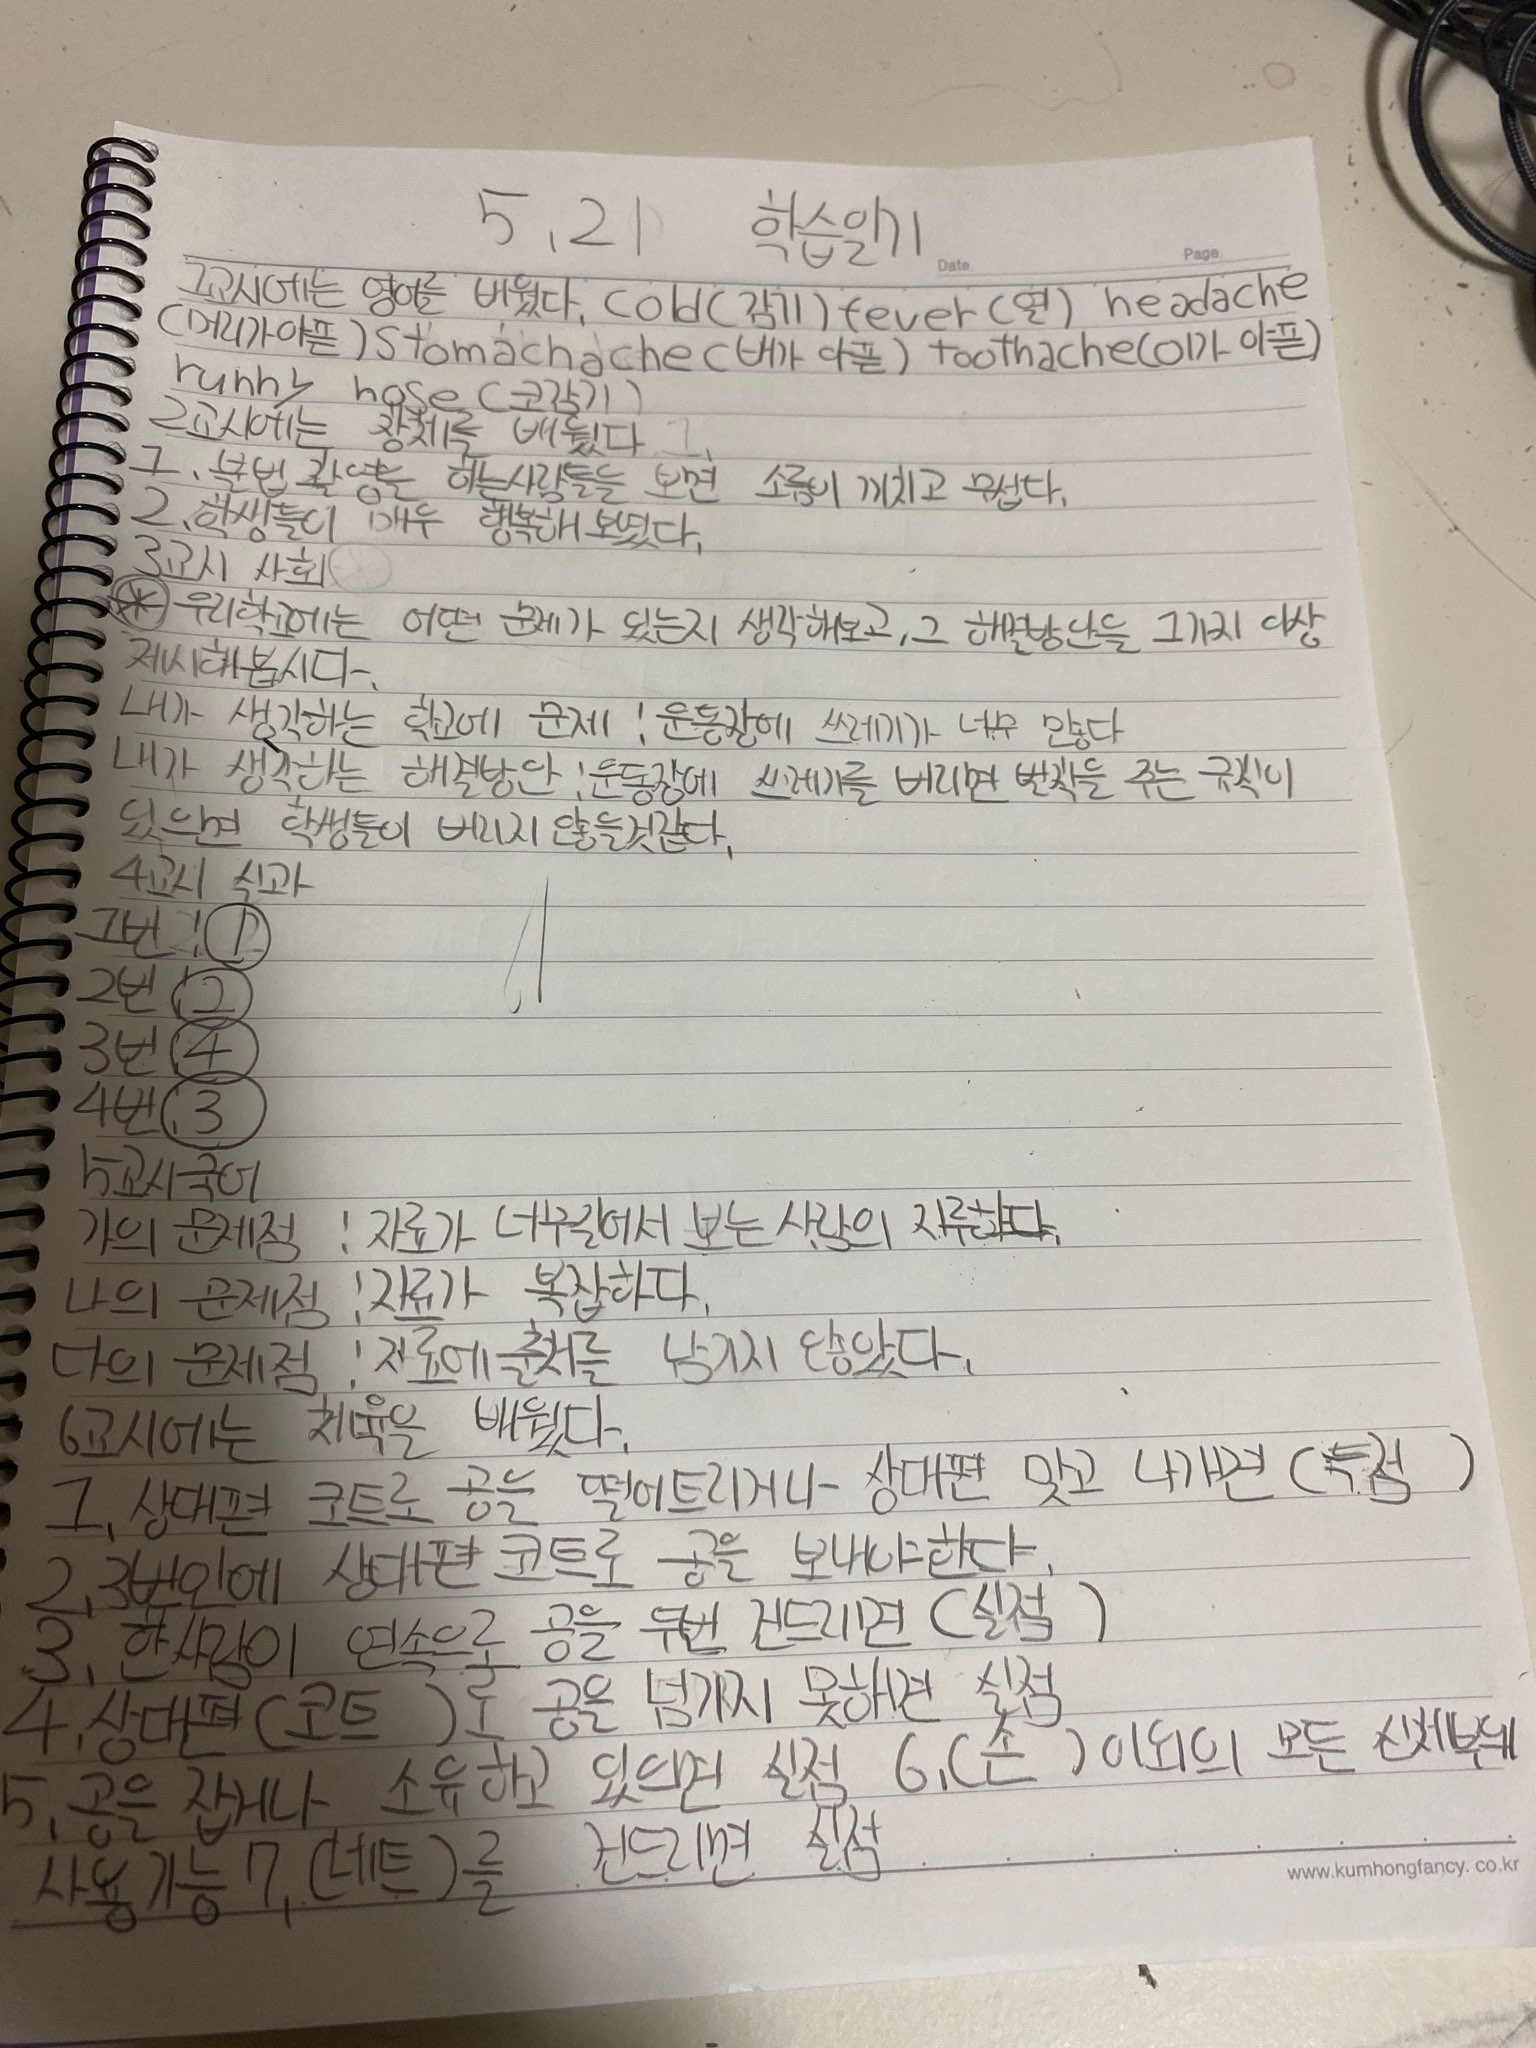 5,21 학습일기
Date. Page.
1교시에는 영어를 배웠다. cold(감기) fever(열) headache
(머리가아픔) Stomachache(배가 아픔) toothache(이가 아픔)
runny nose(코감기)
2교시에는 창체를 배웠다
1. 불법 촬영을 하는사람들을 보면 소름이 끼치고 무섭다.
2. 학생들이 매우 행복해 보였다.
3교시 사회
* 우리학교에는 어떤 문제가 있는지 생각해보고, 그 해결방안을 1가지 이상
제시해 봅시다.
내가 생각하는 학교에 문제 : 운동장에 쓰레기가 너무 많다
내가 생각하는 해결방안 : 운동장에 쓰레기를 버리면 번칙을 주는 규칙이
있으면 학생들이 버리지 않을것같다.
4교시 식과
1번 : ①
2번 : ②
3번 : ④
4번 : ③
5교시 국어
가의 문제점 : 자료가 너무길어서 보는 사람의 지루하다.
나의 문제점 : 자료가 복잡하다.
다의 문제점 : 자료에 출처를 남기지 않았다.
6교시에는 체육을 배웠다.
1. 상대편 코트로 공을 떨어트리거나 상대편 맞고 나가면 (득점 )
2. 3번안에 상대편 코트로 공을 보내야한다.
3. 한사람이 연속으로 공을 두번 건드리면 (실점 )
4. 상대편(코트 )로 공을 넘기지 못하면 실점
5. 공을 잡거나 소유하고 있으면 실점 6.(손 )이외의 모든 신체부위
사용가능 7. (네트)를 건드리면 실점
www.kumhongfancy.co.kr